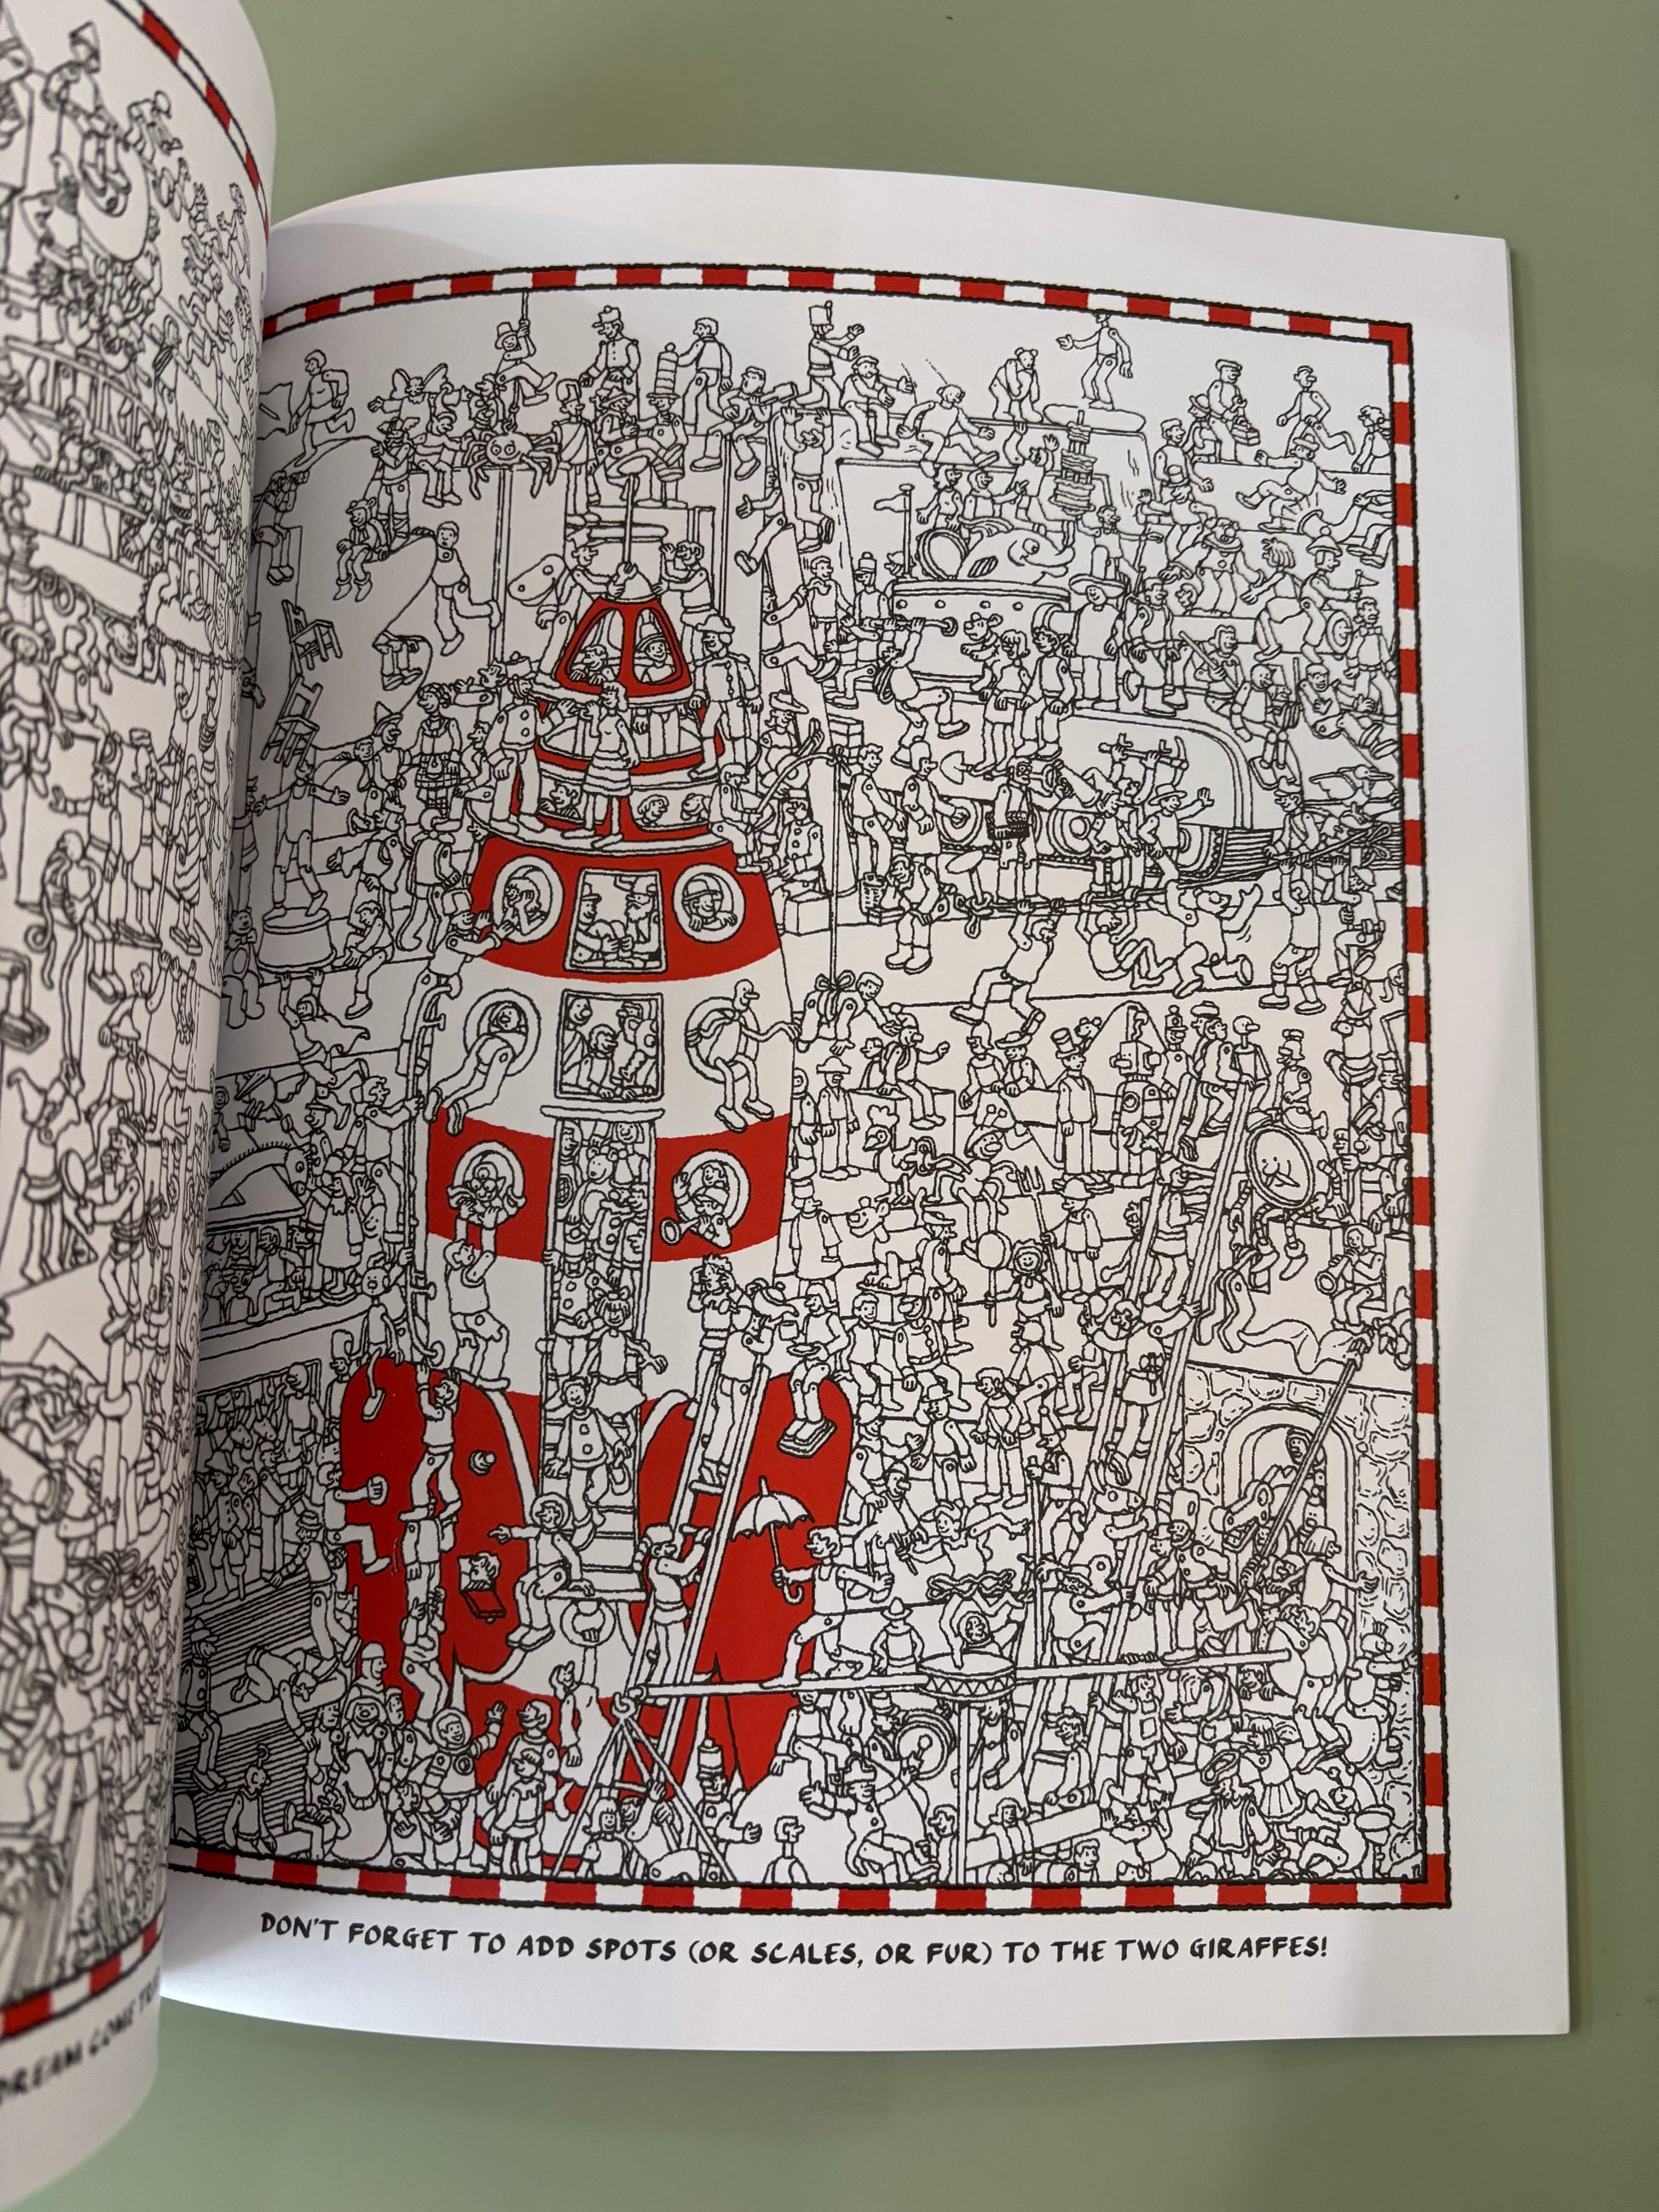 DREAM COME
DON'T FORGET TO ADD SPOTS (OR SCALES, OR FUR) TO THE TWO GIRAFFES!